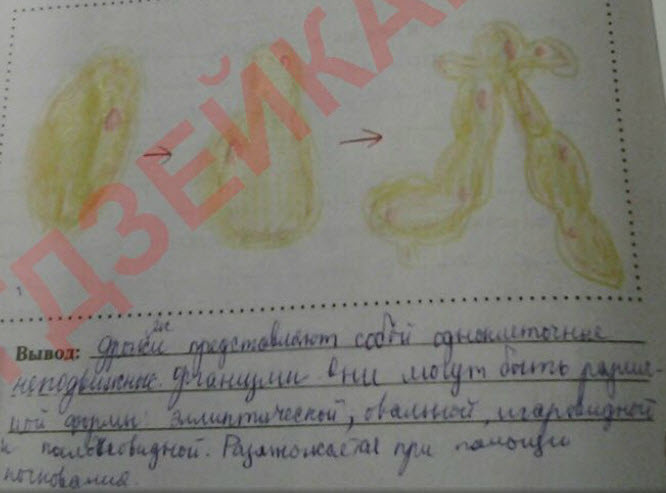 ГДЗЕЙКА
Вывод: дрожжи представляют собой одноклеточные
неподвижные организмы. Они могут быть различ-
ной формы: эллиптической, овальной, шаровидной
и палочковидной. Размножается при помощи
почкования.